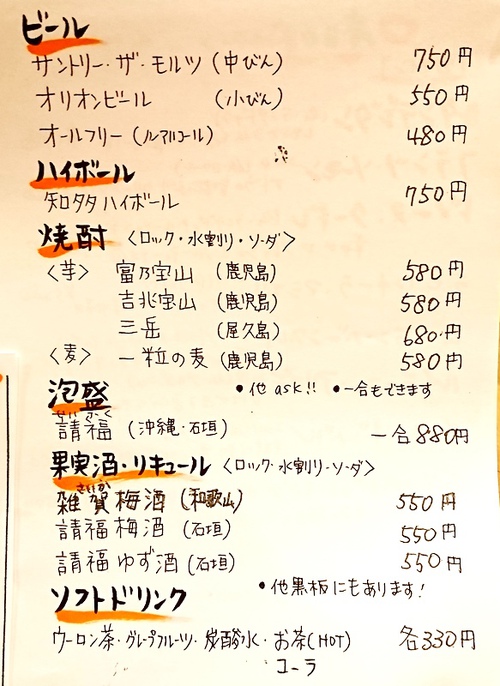 ビール
サントリー・ザ・モルツ(中びん) 750円
オリオンビール (小びん) 550円
オールフリー(ノルアルコール) 480円
ハイボール
知タタハイボール 750円
焼酎 〈ロック・水割り・ソーダ〉
〈芋〉 富乃宝山 (鹿児島) 580円
吉兆宝山 (鹿児島) 580円
三岳 (屋久島) 680円
〈麦〉 一粒の麦 (鹿児島) 580円
泡盛 •他 ask!! •一合もできます
せいふく
請福 (沖縄・石垣) 一合 880円
果実酒・リキュール 〈ロック・水割り・ソーダ〉
さいか
雑賀梅酒 (和歌山) 550円
請福梅酒 (石垣) 550円
請福ゆず酒 (石垣) 550円
•他黒板にもあります!
ソフトドリンク
ウーロン茶・グレープフルーツ・炭酸水・お茶(HOT) 各330円
コーラ